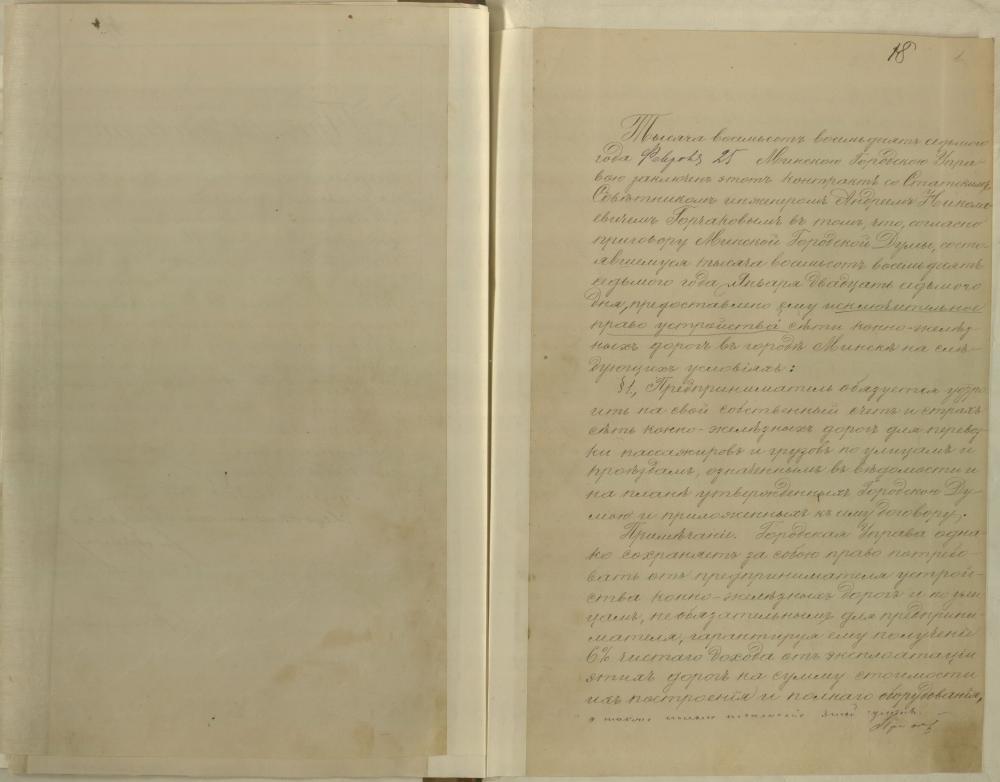 18
Тысяча восемьсотъ восемьдесятъ седьмого
года Февраля 25 Минскою Городскою Упра-
вою заключенъ этотъ контрактъ со Статскимъ
Совѣтникомъ инженеромъ Андреемъ Никола-
евичемъ Горчаковымъ въ томъ, что, согласно
приговору Минской Городской Думы, состо-
явшемуся тысяча восемьсотъ восемьдесятъ
седьмого года Января двадцать седьмого
дня, предоставлено ему исключительное
право устройства сѣти конно-желѣз-
ныхъ дорогъ въ городѣ Минскѣ на слѣ-
дующихъ условіяхъ:
§1, Предприниматель обязуется устро-
ить на свой собственный счетъ и страхъ
сѣть конно-желѣзныхъ дорогъ для перевоз-
ки пассажировъ и грузовъ по улицамъ и
проѣздамъ, означеннымъ въ вѣдомости и
на планѣ утвержденныхъ Городскою Ду-
мою и приложенныхъ къ сему договору;
Примѣчаніе. Городская Управа одна-
ко сохраняетъ за собою право потребо-
вать отъ предпринимателя устрой-
ства конно-желѣзныхъ дорогъ и по ули-
цамъ, необязательнымъ для предприни-
мателя, гарантируя ему полученіе
6% чистаго дохода отъ эксплоатаціи
этихъ дорогъ на сумму стоимости
ихъ построенія и полнаго оборудованія,
а также